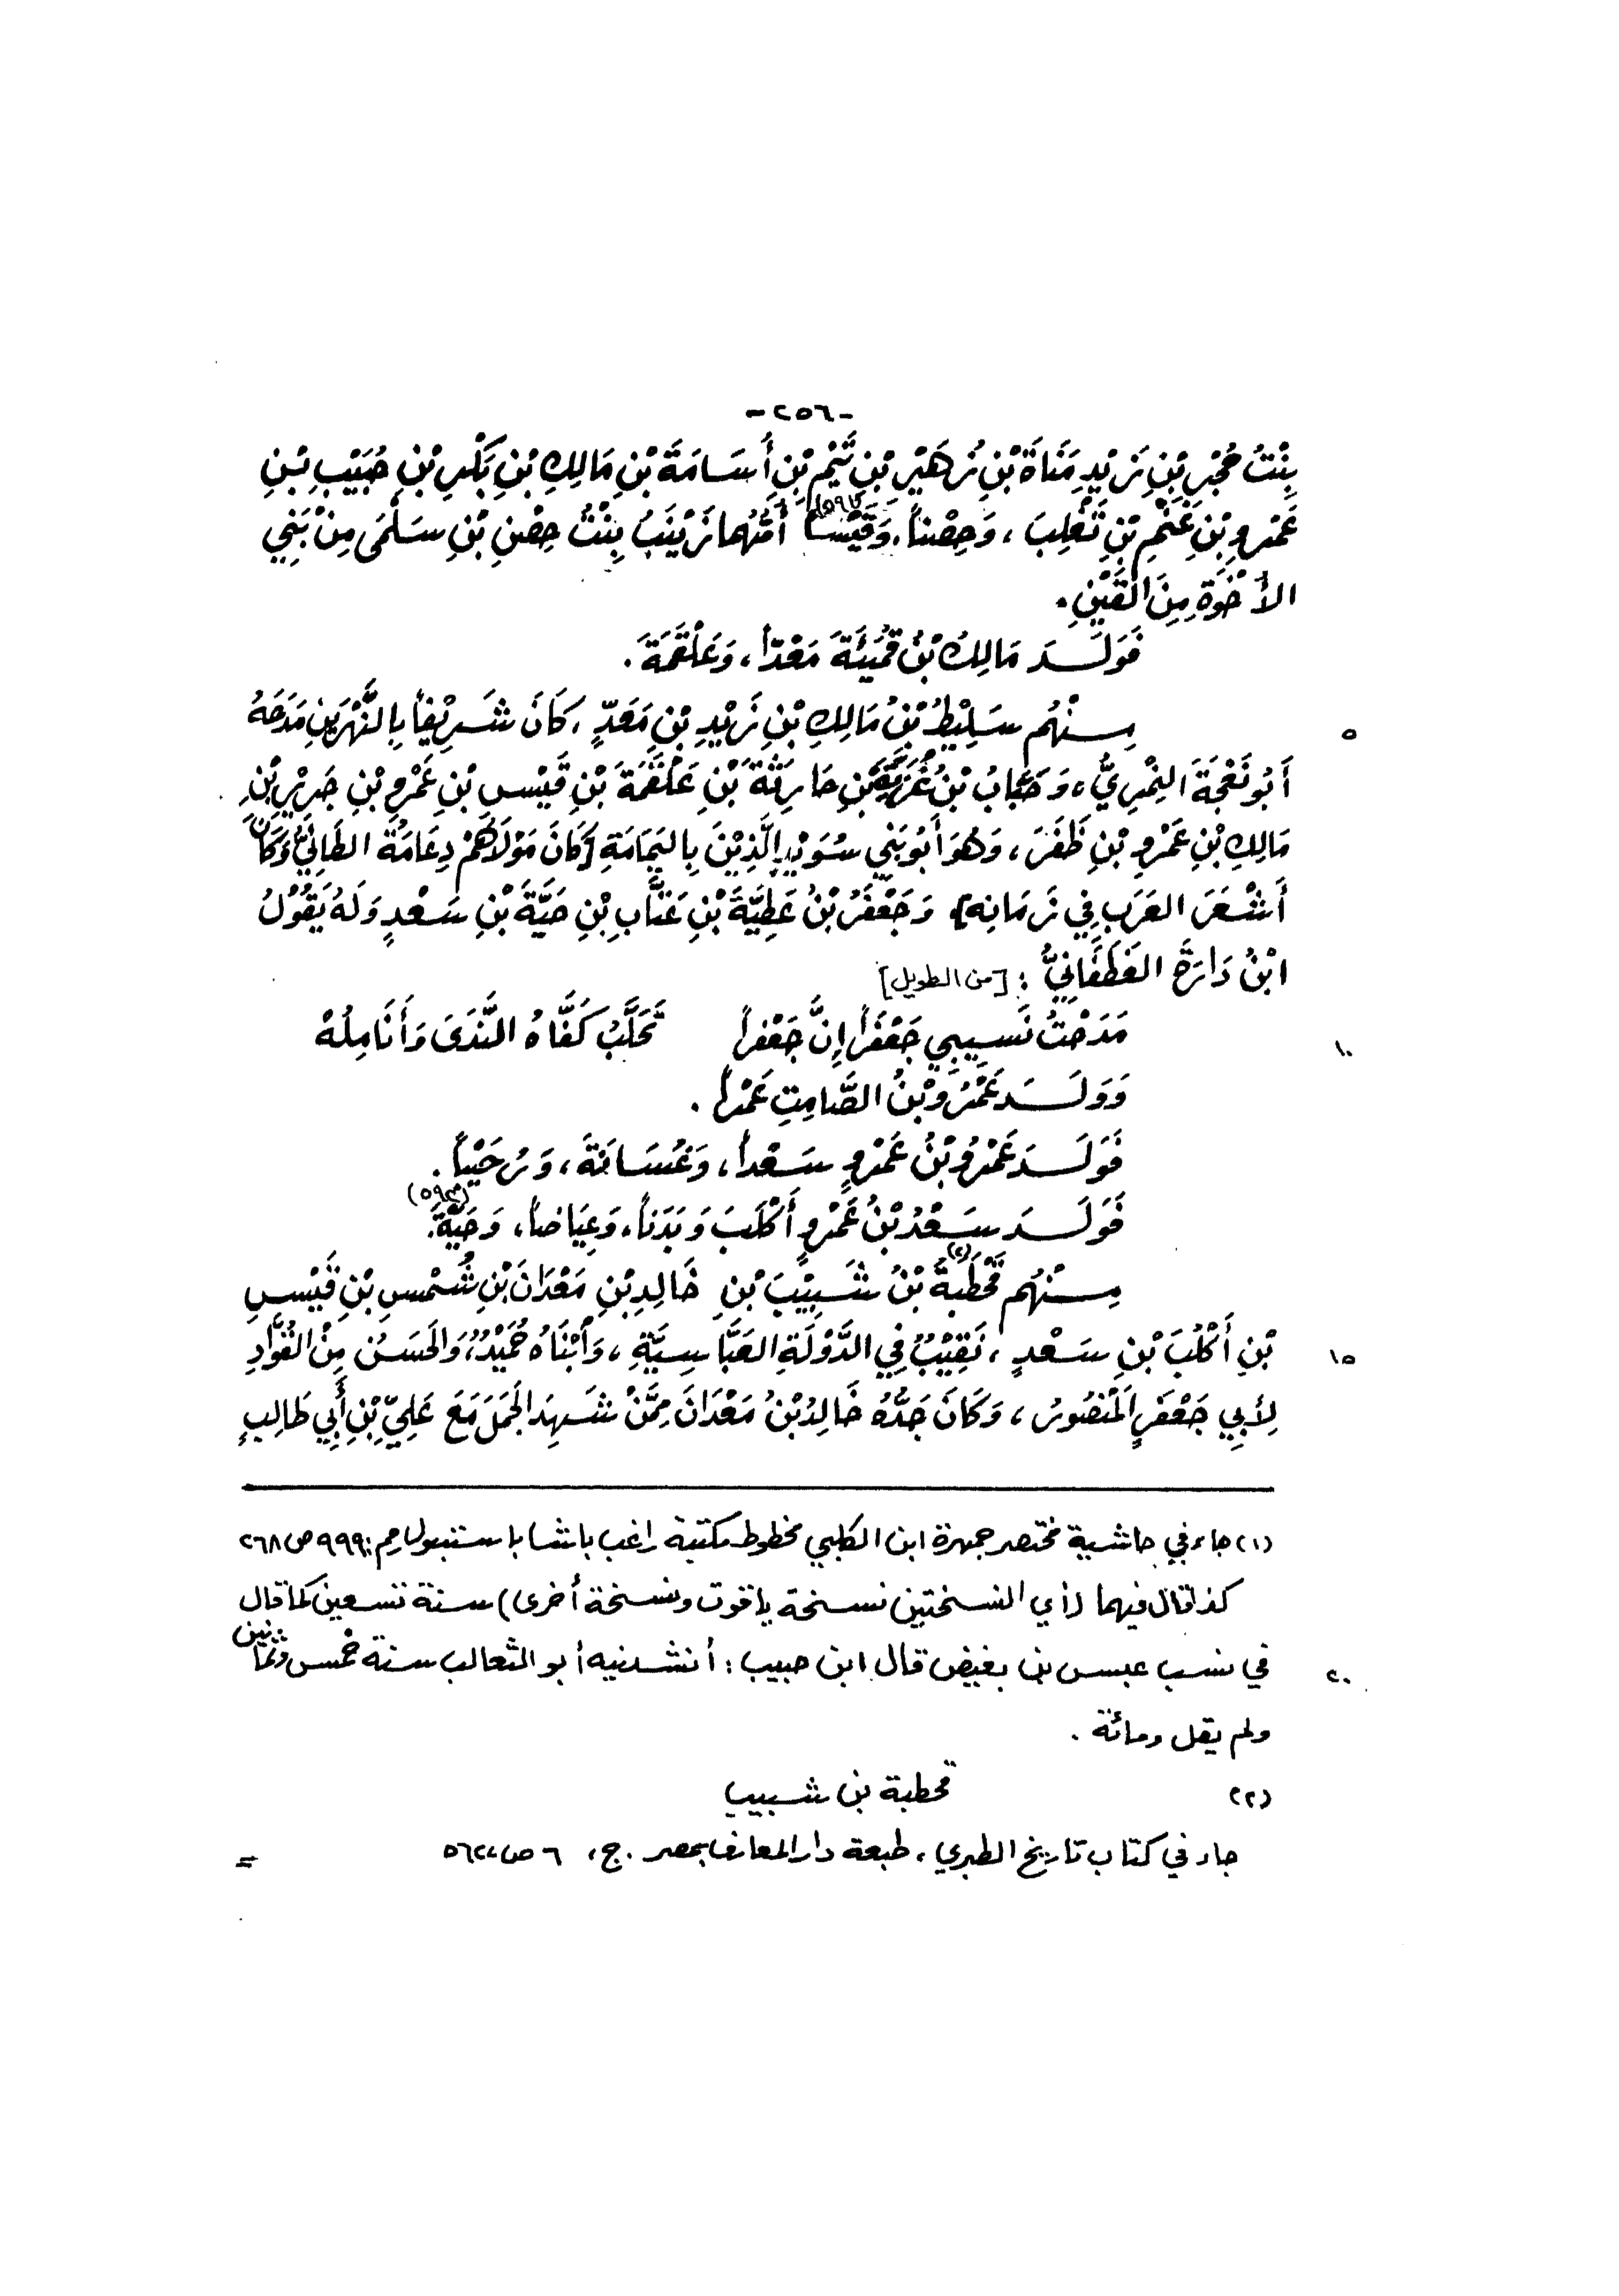 -٢٥٦-
بِنْتُ حُجْرِ بْنِ زَيْدِ مَنَاةَ بْنِ زُهَيْرِ بْنِ تَيْمِ بْنِ أُسَامَةَ بْنِ مَالِكِ بْنِ بَكْرِ بْنِ حُبَيْبِ بْنِ
عَمْرِو بْنِ غَنْمِ بْنِ تَغْلِبَ ، وَحِصْناً، وَقَيْساً أُمُّهُما زَيْنَبُ بِنْتُ حِصْنِ بْنِ سَلْمَى مِنْ بَنِي
الأُخْوَةِ مِنَ القَيْنِ .
فَوَلَدَ مَالِكُ بْنُ قُمَيْئَةَ مَعْدّاً ، وَعَلْقَمَةَ .
مِنْهُم سَلِيْطُ بْنُ مَالِكِ بْنِ زَيْدِ بْنِ مَعَدٍّ ، كَانَ شَرِيْفاً بِالنَّهْرَيْنِ مَدَحَهُ
٥
أَبُو نَعْجَةَ النِمْرِيُّ ، وَ بْنُ بْنِ حَارِثَةَ بْنِ عَلْقَمَةَ بْنِ قَيْسِ بْنِ عَمْرِو بْنِ جَرِيْرِ بْنِ
مَالِكِ بْنِ عَمْرِو بْنِ ظَفَرَ ، وَهُوَ أَبُو بَنِي سُوَيْدٍ الَّذِيْنَ بِاليَمَامَةِ [كَانَ مَوْلَاهُمْ دِعَامَةُ الطَائِيُّ وَكَانَ
أَشْعَرَ العَرَبِ فِي زَمَانِهِ] وَجَعْفَرُ بْنُ عَطِيَّةَ بْنِ عَتَّابِ بْنِ حَيَّةَ بْنِ سَعْدٍ وَلَهُ يَقُوْلُ
ابْنُ دَارَةَ الغَطَفَانِيُّ : [من الطويل]
مَدَحْتُ نَسِيبِي جَعْفَراً إِنَّ جَعْفَراً تَحَلَّبُ كَفَّاهُ النَّدَى وَأَنَامِلُهْ
١٠
وَوَلَدَ عَمْرُو بْنُ الصَّامِتِ عَمْراً .
فَوَلَدَ عَمْرُو بْنُ عَمْرٍو سَعْداً ، وَغُسَانَةَ ، وَرُحَيْباً .
فَوَلَدَ سَعْدُ بْنُ عَمْرٍو أَكْلُبَ وَبَدَناً ، وَعِيَاضاً ، وَحَيَّةَ .
مِنْهُم قَحْطَبَةُ (٢) بْنُ شَبِيْبَ بْنِ خَالِدِ بْنِ مَعْدَانَ بْنِ شُمْسِ بْنِ قَيْسِ
بْنِ أَكْلُبَ بْنِ سَعْدٍ ، نَقِيْبٌ فِي الدَّوْلَةِ العَبَّاسِيَّةِ ، وَأَبْنَاهُ حُمَيْدٌ ، وَالحَسَنُ مِنْ القُوَّادِ
١٥
لِأَبِي جَعْفَرٍ المَنْصُورِ ، وَكَانَ جَدُّهُ خَالِدُ بْنُ مَعْدَانَ مِمَّنْ شَهِدَ الجَمَلَ مَعَ عَلِيِّ بْنِ أَبِي طَالِبٍ
(١) جاء في حاشية مختصر جمهرة ابن الكلبي مخطوط مكتبة راغب باشا باستنبول رقم: ٩٩٩ ص ٢٦٨
كذا قال فيهما (أي النسختين نسخة ياقوت ونسخة أخرى) سنة تسعين كما قال
في نسب عبس بن بغيض قال ابن حبيب : أنشدنيه أبو الثعالب سنة خمس وثمانين
٢٠
ولم يقل ومائة .
(٢) قحطبة بن شبيب
جاء في كتاب تاريخ الطبري ، طبعة دار المعارف بمصر . ج ، ٦ ص
=